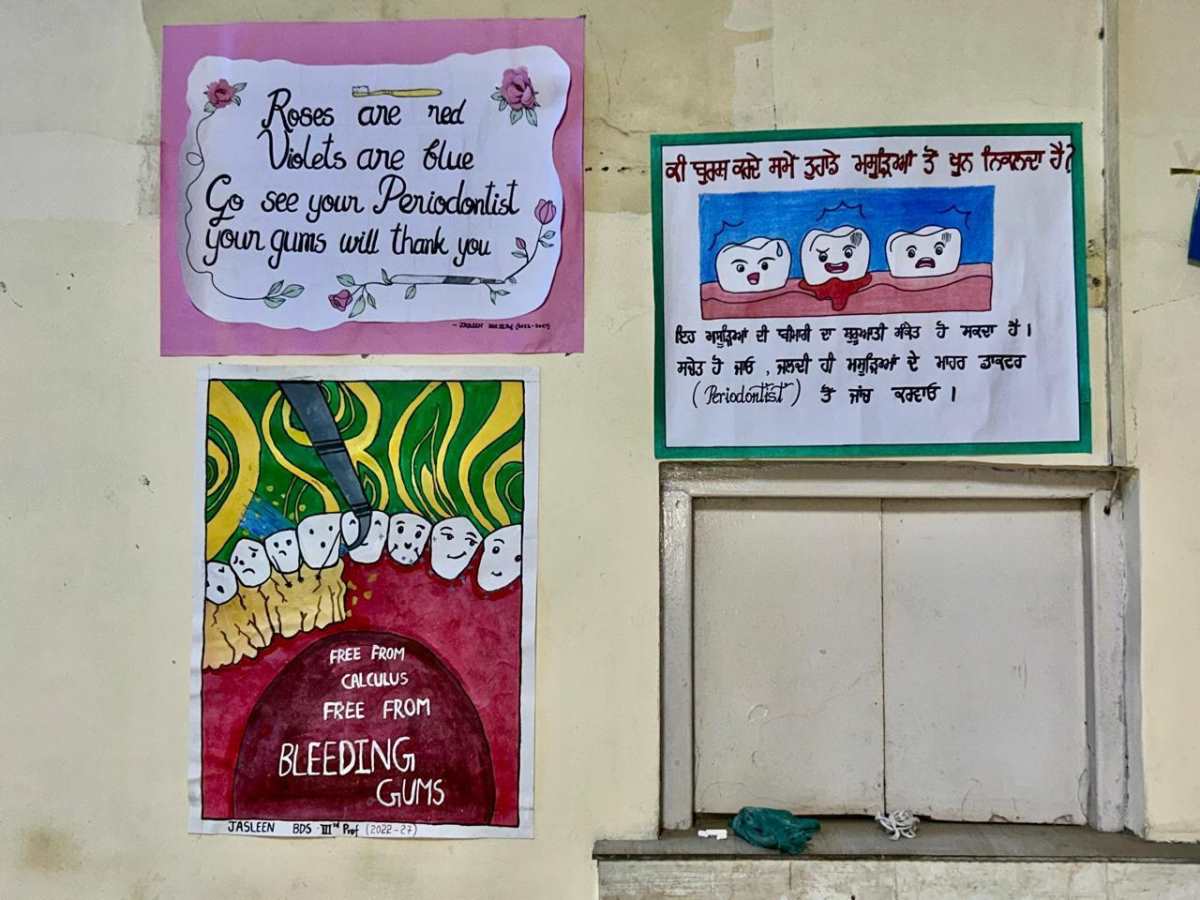 Roses are red
Violets are blue
Go see your Periodontist
your gums will thank you
FREE FROM
CALCULUS
FREE FROM
BLEEDING
GUMS
JASLEEN BDS - IIIrd Prof (2022-27)
ਕੀ ਬੁਰਸ਼ ਕਰਦੇ ਸਮੇਂ ਤੁਹਾਡੇ ਮਸੂੜਿਆਂ ਤੋਂ ਖੂਨ ਨਿਕਲਦਾ ਹੈ?
ਇਹ ਮਸੂੜਿਆਂ ਦੀ ਬੀਮਾਰੀ ਦਾ ਸ਼ੁਰੂਆਤੀ ਸੰਕੇਤ ਹੋ ਸਕਦਾ ਹੈ।
ਸਚੇਤ ਹੋ ਜਾਓ , ਜਲਦੀ ਹੀ ਮਸੂੜਿਆਂ ਦੇ ਮਾਹਰ ਡਾਕਟਰ
(Periodontist) ਤੋਂ ਜਾਂਚ ਕਰਵਾਓ ।